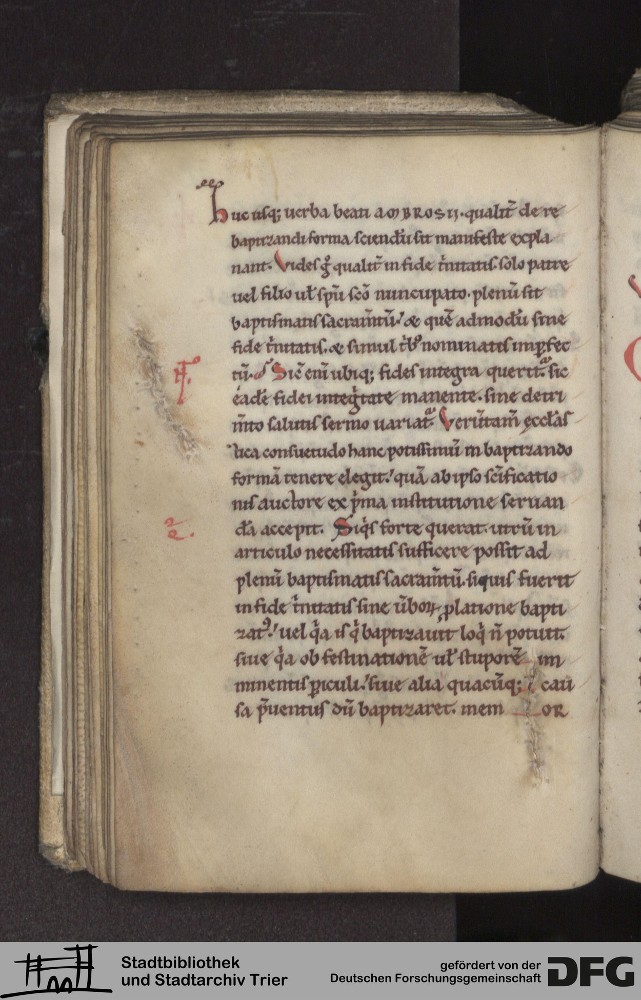 Huc usq; uerba beati AMBROSII. qualit̄ de re
baptizandi forma sciendū sit manifeste expla
nant. Vides gͦ qualit̄ in fide t̄nitatis. solo patre
uel filio ul̄ sp̄u sc̄o nuncupato. plenū sit
baptismatis sacram̄tū. & quē admodū sine
fide t̄nitatis. & simul t̄b; nominatis imꝑfec
tū. Sic eni ubiq; fides integra querit᷑. sic
eadē fidei integͥtate manente. sine detri
m̄to salutis sermo uariat᷑. Verūtam̄ ęcclas̄
tica consuetudo hanc potissimū in baptizando
formā tenere elegit. quā ab ipso sc̄ificatio
nis auctore ex pͥma institutione seruan
dā accepit. Siqͥs forte querat. utrū in
articulo necessitatis sufficere possit ad
plenū baptismatis sacram̄tū. siquis fuerit
in fide t̄nitatis sine ūboꝝ ꝓlatione bapti
zatꝰ. uel qͥa is qͥ baptizauit loqͥ n̄ potuit.
siue qͥa ob festinationē ul̄ stuporē im
minentis ꝑiculi. siue alia quacūq; cau
sa p̄uentus dū baptizaret. mem OR
Stadtbibliothek
und Stadtarchiv Trier
gefördert von der
Deutschen Forschungsgemeinschaft
DFG